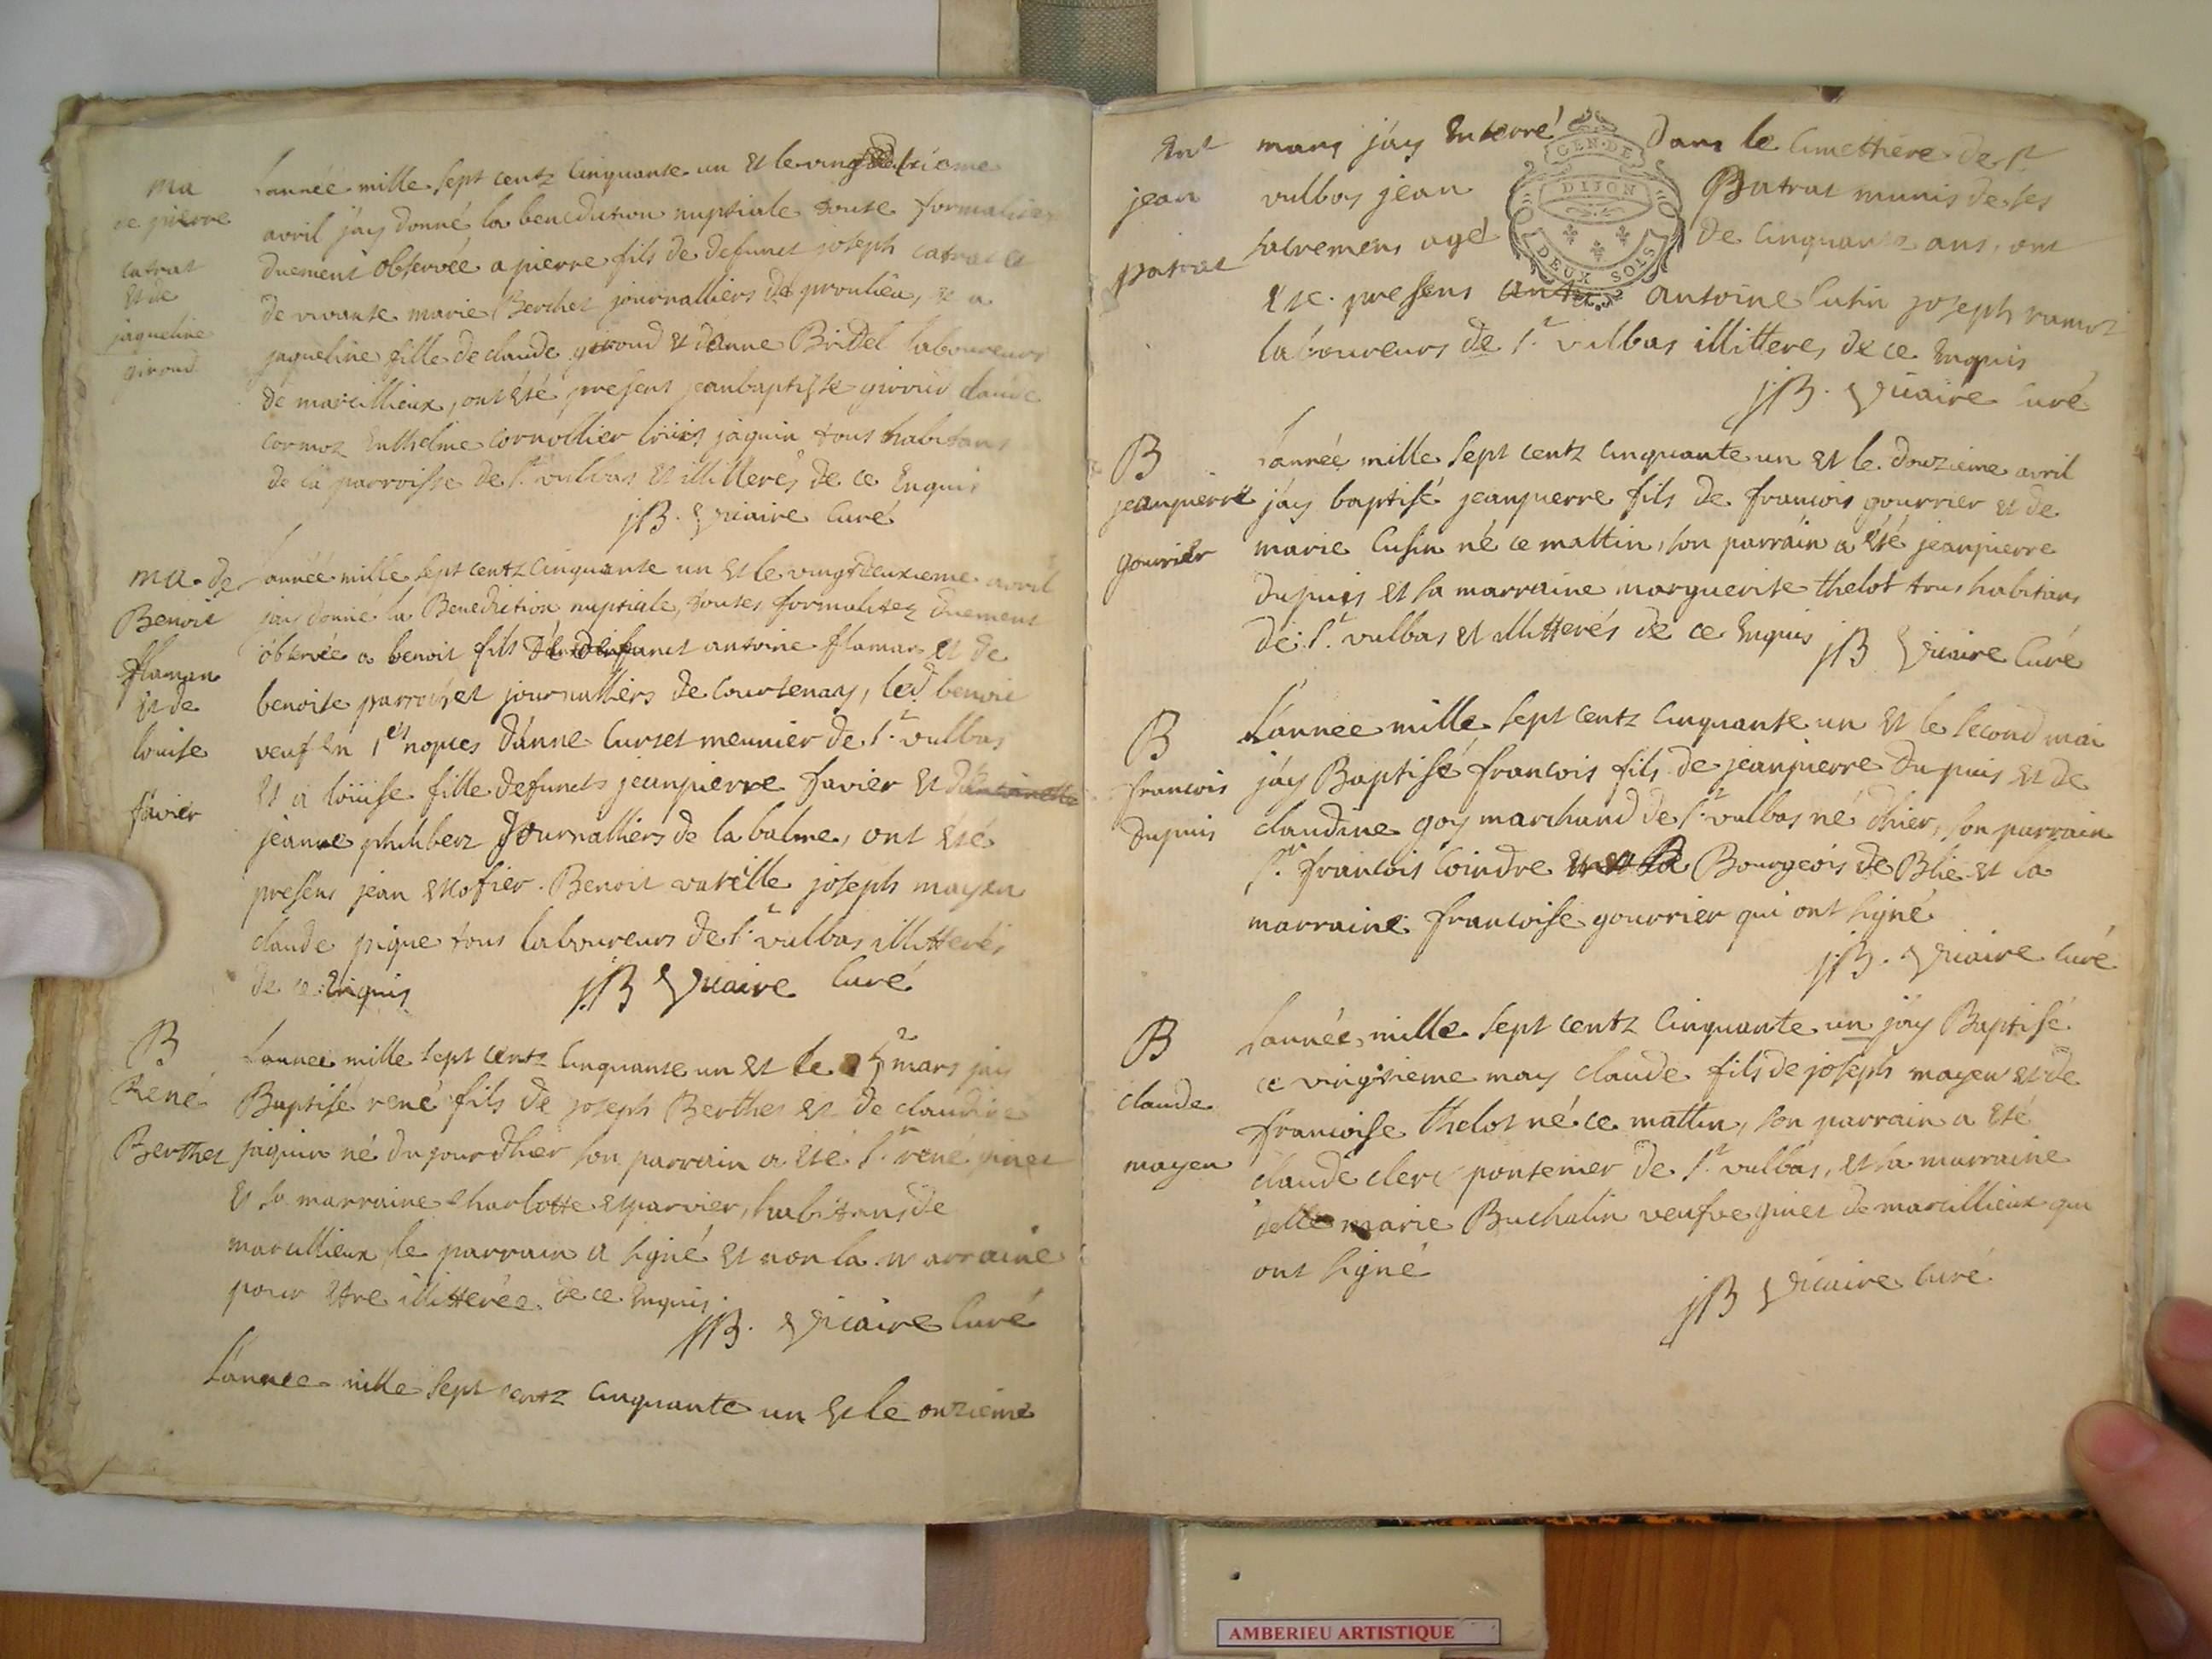 ma
de pierre
catrat
et de
jaqueline
giroud
L'année mille sept centz cinquante un et le vingt deuxieme
avril j'ay donné la benediction nuptiale toute formalitez
duement observée a pierre fils de defunct joseph catrat et
de vivante marie Berthet journalliers de proulieu, et a
jaqueline fille de claude giroud et d'anne Bridel laboureurs
de marcillieux, ont été presens jeanbaptiste giroud claude
cormoz Enthelme cornollier loüis jaquin tous habitans
de la parroisse de St vulbas et illitterés de ce Enquis
JB. Vicaire Curé
ma. de
Benoit
flaman
et de
louise
favier
L'année mille sept centz cinquante un et le vingt deuxieme avril
j'ay donné la Benediction nuptiale, toutes formalitez duement
observée a benoit fils de defunct antoine flaman et de
benoite parrochet journalliers de Courtenay, led benoit
veuf en 1es nopces d'anne Curtet meunier de St vulbas
et a loüise fille defuncts jeanpierre favier et d'antoinette
jeanne philibert Journalliers de la balme, ont été
presens jean Benoit vareille joseph mayen
claude pique tous laboureurs de St vulbas illitterés
de ce Enquis JB Vicaire Curé
B
René
Berthet
L'année mille sept centz cinquante un et le mars j'ay
Baptisé rené fils de joseph Berthet et de claudine
jaquin né du jour d'hier son parrain a été Sr rené ginet
et sa marraine charlotte esparvier, habitans de
marcillieux le parrain a signé et non la marraine
pour etre illitterée de ce Enquis.
JB. Vicaire Curé
L'année mille sept centz cinquante un et le onzieme
Ent
jean
patrat
mars j'ay Enterré dans le cimettiere de St
vulbas jean Batrat munis de ses
sacremens agé de cinquante ans, ont
été presens anto antoine Cusin joseph ramoz
laboureurs de St vulbas illitteres de ce Enquis
JB. Vicaire Curé
GEN·DE
DIJON
DEUX SOLS
B
jeanpierre
gourrier
L'année mille sept centz cinquante un et le douzieme avril
j'ay baptisé jeanpierre fils de francois gourrier et de
marie Cusin né ce mattin, son parrain a été jeanpierre
dupuis et sa marraine marguerite thelot tous habitans
de St vulbas et illitterés de ce Enquis JB Vicaire Curé
B
francois
dupuis
L'année mille sept centz cinquante un et le second mai
j'ay Baptisé francois fils de jeanpierre dupuis et de
claudine goy marchand de St vulbas né d'hier, son parrain
Sr francois Coindre et la Bourgeois de Blie et la
marraine francoise gourrier qui ont signé
JB. Vicaire Curé
B
claude
mayen
L'année mille sept centz cinquante un j'ay Baptisé
ce vingtieme may claude fils de joseph mayen et de
francoise thelot né ce mattin, son parrain a été
claude clerc pontenier de St vulbas, et sa marraine
delle marie Buchalin veufve ginet de marcillieux qui
ont signé
JB Vicaire Curé
AMBERIEU ARTISTIQUE